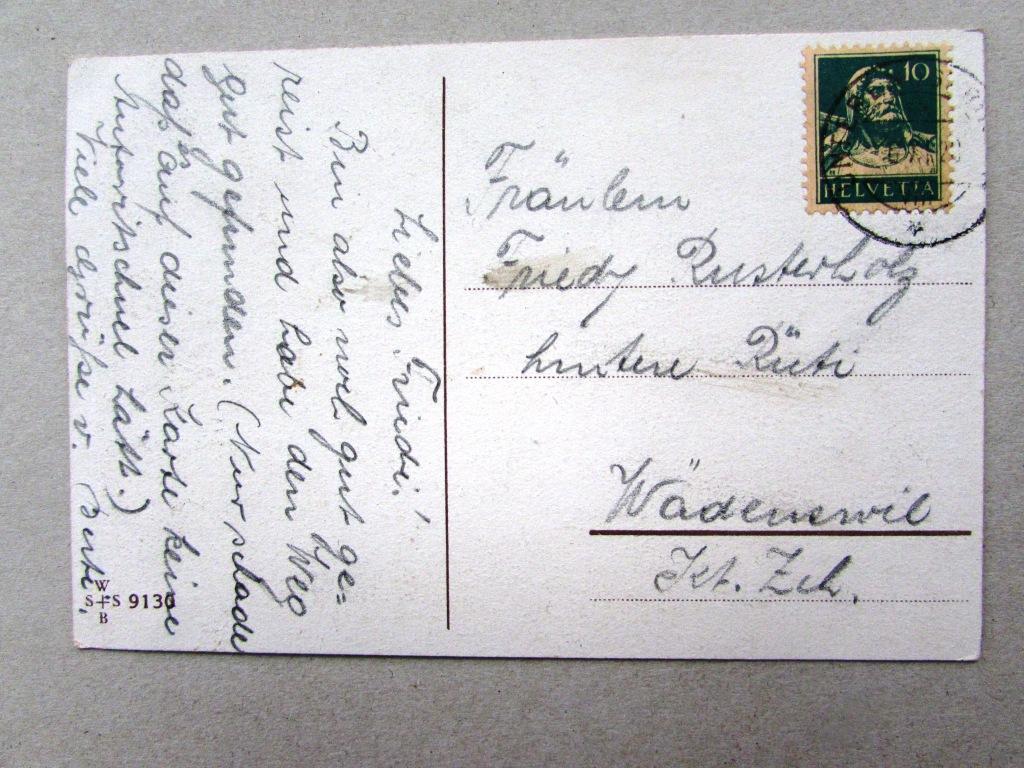 Liebes Friedi!
Bin also wohl gut ge=
reist und habe den Weg
gut gefunden. (Nur schade
daß auf dieser Karte keine
hätt.)
Viele Grüße v. Berti.
10
HELVETIA
Fräulein
Friedy Rusterholz
hintere Rüti
Wädenswil
Kt. Zch.
W
S+S 9130
B